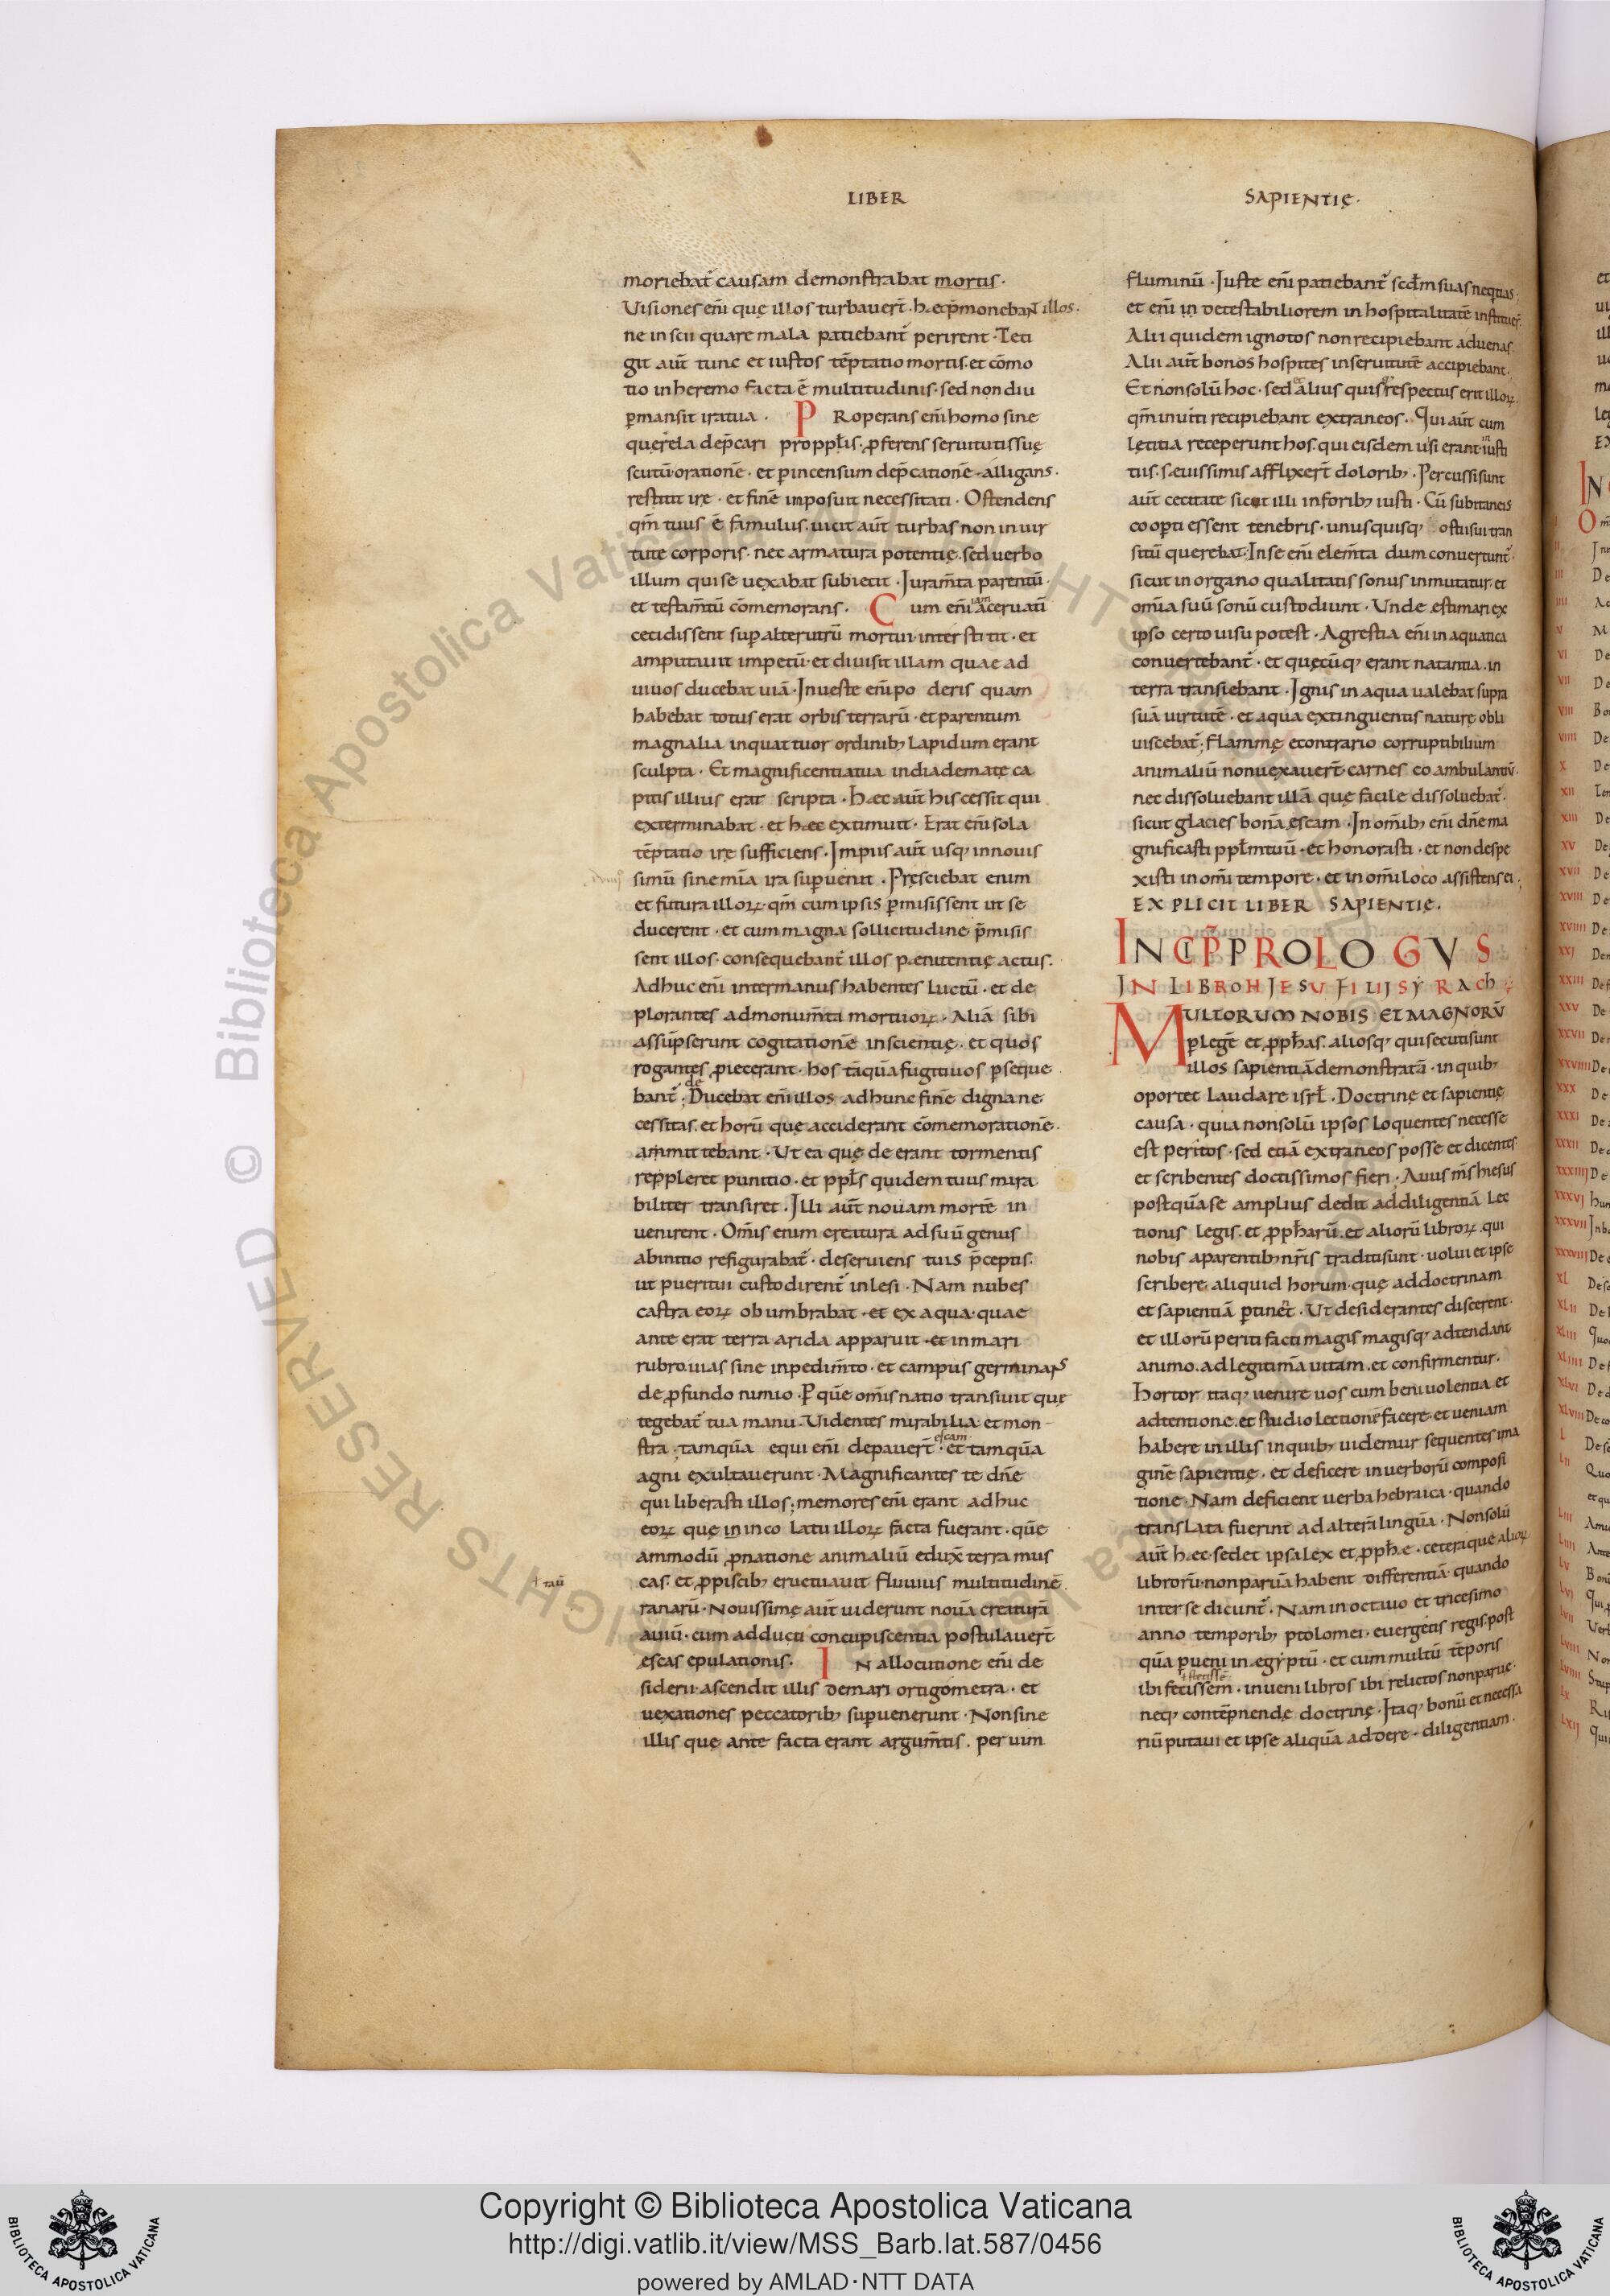 LIBER SAPIENTIĘ·
moriebat̃ causam demonstrabat mortis·
Visiones em̃ quę illos turbauer̃t· hęc p̃monebant illos·
ne inscii quare mala patiebant̃ perirent· Teti
git aut̃ tunc et iustos tẽptatio mortis· et cõmo
tio in heremo facta ẽ multitudinis· sed non diu
ꝑmansit ira tua· Properans em̃ homo sine
querela dep̃cari pro pplis· ꝓferens seruitutis suę
scutũ· orationẽ· et ꝑ incensum dep̃cationẽ· alligans·
restitit irę· et finẽ imposuit necessitati· Ostendens
qm̃ tuus ẽ famulus· uicit aut̃ turbas non in uir
tute corporis· nec armatura potentię· sed uerbo
illum qui se uexabat subiecit· Iuram̃ta parentũ·
et testam̃tũ cõmemorans· Cum em̃ iam aceruati
cecidissent suꝑ alterutrũ mortui· interstitit· et
amputauit impetũ· et diuisit illam quae ad
uiuos ducebat uiã· In ueste em̃ po deris quam
habebat totus erat orbis terrarũ· et parentum
magnalia in quattuor ordinib; lapidum erant
sculpta· Et magnificentia tua in diademate ca
pitis illius erat scripta· Hęc aut̃ his cessit qui
exterminabat· et hęc extimuit· Erat em̃ sola
tẽptatio irę sufficiens· Impiis aut̃ usq; in nouis
simũ sine mĩa ira suꝑuenit· Pręsciebat enim
et futura illoꝝ· qm̃ cum ipsis ꝑmisissent ut se
ducerent· et cum magna sollicitudine p̃misis
sent illos· consequebant̃ illos pęnitentię actus·
Adhuc em̃ inter manus habentes luctũ· et de
plorantes ad monum̃ta mortuoꝝ· Aliã sibi
assũpserunt cogitationẽ inscientię· et quos
rogantes ꝓiecerant· hos tãquã fugitiuos ꝑseque
bant̃· Ducebat em̃ illos ad hunc finẽ digna ne
cessitas· et horũ quę acciderant cõmemorationẽ·
ammittebant· Ut ea quę deerant tormentis
reppleret punitio· et ppls quidem tuus mira
biliter transiret· Illi aut̃ nouam mortẽ in
uenirent· Om̃is enim creatura ad suũ genus
ab initio refigurabat̃· deseruiens tuis p̃ceptis·
ut pueri tui custodirent̃ inlesi· Nam nubes
castra eoꝝ obumbrabat· et ex aqua· quae
ante erat terra arida apparuit· et in mari
rubro uias sine inpedim̃to· et campus germinans
de ꝓfundo nimio· Ꝑ quẽ om̃is natio transiuit quę
tegebat̃ tua manu· Videntes mirabilia et mon-
stra· tamquã equi em̃ depauer̃t escam· et tamquã
agni exultauerunt· Magnificantes te dñe
qui liberasti illos; memores em̃ erant adhuc
eoꝝ quę in incolatu illoꝝ facta fuerant· quẽ
ammodũ ꝓ natione animaliũ edux̃ terra mus
cas· et ꝓ piscib; eructuauit fluuius multitudinẽ
ranarũ· Nouissimę aut̃ uiderunt nouã creaturã
auiũ· cum adducti concupiscentia postulauer̃t
escas epulationis· In allocutione em̃ de
siderii· ascendit illis de mari ortigometra· et
uexationes peccatorib; suꝑuenerunt· Non sine
illis quę ante facta erant argum̃tis· per uim
fluminũ· Iuste em̃ patiebant̃ scdm suas nequitias;
et em̃ in detestabiliorem inhospitalitatẽ instituer̃t·
Alii quidem ignotos non recipiebant aduenas·
Alii aut̃ bonos hospites in seruitutẽ accipiebant·
Et non solũ hoc· sed et alius quis respectus erit illoꝝ·
qm̃ inuiti recipiebant extraneos· Qui aut̃ cum
lętitia receperunt hos· qui eisdem usi erant iusti
tiis· sęuissimis afflixer̃t dolorib;· Percussi sunt
aut̃ cecitate sicut illi in forib; iusti· Cũ subitaneis
cooꝑti essent tenebris· unusquisq; ostii sui tran
sitũ querebat· In se em̃ elem̃ta dum conuertunt̃·
sicut in organo qualitatis sonus inmutatur· et
om̃ia suũ sonũ custodiunt· Unde ęstimari ex
ipso certo uisu potest· Agrestia em̃ in aquatica
conuertebant̃· et quęcũq; erant natantia· in
terra transiebant· Ignis in aqua ualebat supra
suã uirtutẽ· et aqua extinguentis naturę obli
uiscebat̃; Flammę econtrario corruptibilium
animaliũ non uexauer̃t carnes coambulantiũ·
nec dissoluebant illã quę facile dissoluebat̃·
sicut glacies bonã escam· In om̃ib; em̃ dñe ma
gnificasti pplm tuũ· et honorasti· et non despe
xisti in om̃i tempore· et in om̃i loco assistens ei;
EXPLICIT LIBER SAPIENTIĘ·
INCIP̃ PROLOGVS
IN LIBRO HIESV FILII SYRACH·
MULTORUM NOBIS ET MAGNORŨ
ꝑ legẽ et ꝓphas· aliosq; qui secuti sunt
illos sapientiã demonstratã· in quib;
oportet laudare isrl· Doctrinę et sapientię
causa· quia non solũ ipsos loquentes necesse
est peritos· sed etiã extraneos posse et dicentes
et scribentes doctissimos fieri· Auus m̃s hiesus
postquã se amplius dedit ad diligentiã lec
tionis legis· et ꝓpharũ· et aliorũ libroꝝ· qui
nobis a parentib; nr̃is traditi sunt· uolui et ipse
scribere aliquid horum· quę ad doctrinam
et sapientiã ꝑtinet· Ut desiderantes discere·
et illorũ periti facti magis magisq; adtendant
animo· ad legitimã uitam· et confirmentur·
Hortor itaq; uenire uos cum beniuolentia et
adtentione· et studio lectionẽ facere· et ueniam
habere in illis in quib; uidemur sequentes ima
ginẽ sapientię· et deficere in uerborũ composi
tione· Nam deficient uerba hebraica· quando
translata fuerint ad alterã linguã· Non solũ
aut̃ hęc· sed et ipsa lex et ꝓphę· ceteraque alioꝝ
librorũ· non paruã habent differentiã· quando
inter se dicunt̃· Nam in octauo et tricesimo
anno temporib; ptolomei· euergetis regis· post
quã ꝑueni in ęgyptũ· et cum multũ tẽporis
ibi fecissem· inueni libros ibi relictos non paruę·
neq; contẽpnendę doctrinę· Itaq; bonũ et necessa
riũ putaui et ipse aliquã addere· diligentiam·
Copyright © Biblioteca Apostolica Vaticana
http://digi.vatlib.it/view/MSS_Barb.lat.587/0456
powered by AMLAD·NTT DATA